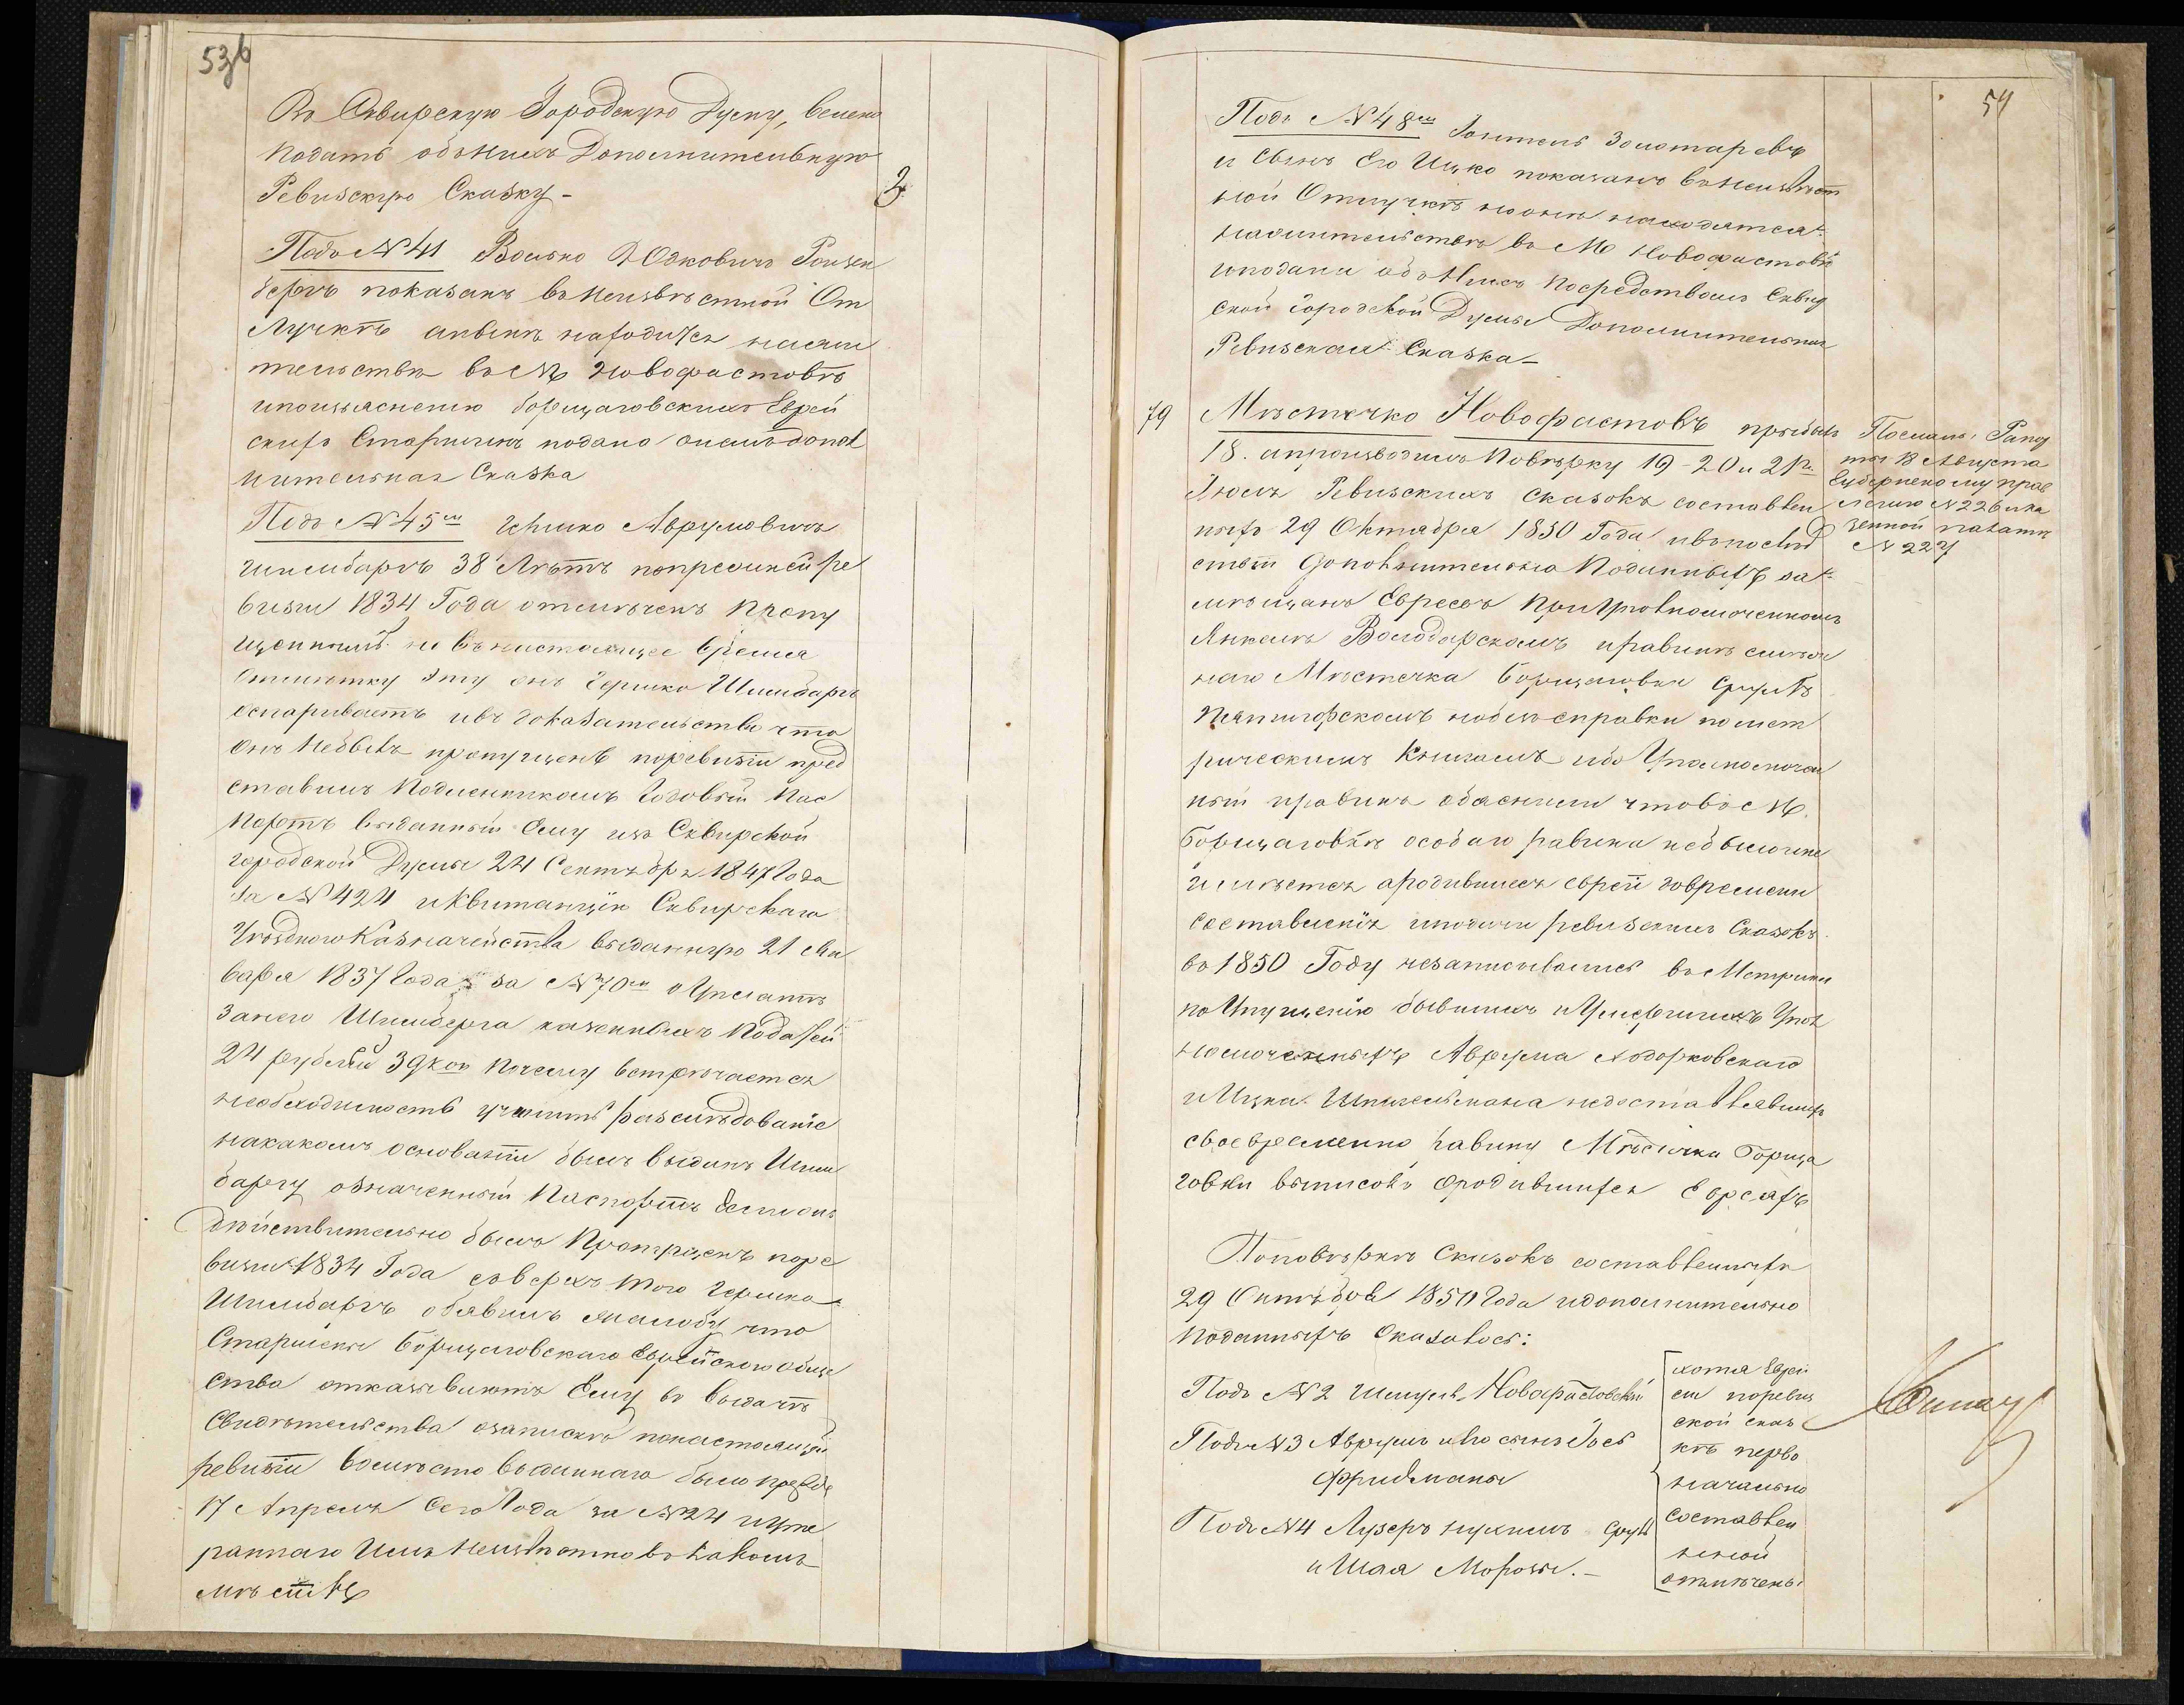 53б
Въ Сквирскую Городскую Думу, велено
подать объ нихъ Дополнительную
Ревизскую Сказку –
2
Подъ №41 Волько Юдковичъ Ройзен
бергъ показанъ въ неизвѣстной От
лучкѣ анвенъ находится нажи
тельствѣ въ М Новофастовѣ
ипоизъясненію борщаговскихъ Еврей
скихъ Старшинъ подано онемъ допол
нительная Сказка
Подъ №45мъ Гершко Аврумовичъ
Шимбаргъ 38 Лѣтъ попрежней ре
визіи 1834 Года отмѣченъ пропу
щеннымъ но въ настоящее время
отмѣтку эту онъ Гершко Шимбаргъ
оспариваетъ ивъ доказательство что
онъ небылъ пропущенъ поревизіи пред
ставилъ подлинникомъ Годовый пас
портъ выданный Ему изъ Сквирской
городской Думы 24 Сентября 1847 Года
за №424 иквитанцію Сквирскаго
Уѣзднаго Казначейства выданную 21 Ян
варя 1837 Года за №70мъ оуплатѣ
занего Шимберга казенныхъ податей
24 рублей 39 коп почему встрѣчается
необходимость учинить разслѣдованіе
накакомъ основаніи былъ выданъ Шим
баргу означенный паспортъ Если онъ
дѣйствительно былъ пропущенъ поре
визіи 1834 Года сверхъ того Гершко
Шимбаргъ объявилъ жалобу что
Старшины Борщаговскаго Еврейскаго обще
ства отказываютъ Ему въ выдачѣ
Свидѣтельства озапискѣ понастоящей
ревизіи вмѣсто выданнаго было прежде
17 Апреля Сего Года за №24 иуте
раннаго Имъ неизвѣстно въ какомъ
мѣстѣ
54
Подъ №48мъ Золотаревъ
и Сынъ Его Ицко показанъ въ неизвѣст
ной Отлучкѣ но они находятся
нажительствѣ въ М Новофастовѣ
иподана объ нихъ посредствомъ Сквир
ской городской Думы Дополнительная
Ревизская Сказка –
79
Мѣстечко Новофастовъ прибылъ
18. ипроизводилъ повѣрку 19 - 20 и 21го
Іюля Ревизскихъ Сказокъ составлен
ныхъ 29 Октября 1850 Года ивпослѣд
ствіи дополнительно поданныхъ за
мѣщанъ Евреевъ при Уполномоченномъ
Янкелѣ Володарскомъ иравинѣ смѣж
наго Мѣстечка Борщаговки Срулѣ
Пятигорскомъ нобезъ справки помет
рическимъ книгамъ ибо Уполномочен
ный иравинъ объяснили что въ М.
Борщаговкѣ особаго равина небыло ине
имѣется ародившіеся евреи довремени
составленія ревизскихъ Сказокъ
въ 1850 Году незаписывались въ Метрики
по Упущенію бывшихъ иУмершихъ Упол
номоченныхъ Аврума Ходорковскаго
и Ицка Шпигельмана недоставлявшихъ
своевременно равину Мѣстечка Борща
говки выписокъ ородившихся Евреяхъ
Посланъ Рапор
ты 18 Августа
Губернскому прав
ленію №226 ика
зенной палатѣ
№227
Поповѣркѣ Сказокъ составленныхъ
29 Октября 1850 Года идополнительно
поданныхъ Оказалось:
Подъ №2 Шмуль Новофастовскій
Подъ №3 Аврумъ иего сынъ Іось
Фридманы
Подъ №4 Лузеръ Нухимъ Сруль
и Шая Морозы. –
хотя Еврей
си поревиз
ской сказ
кѣ перво
начально
составлен
ненной
отмѣчены